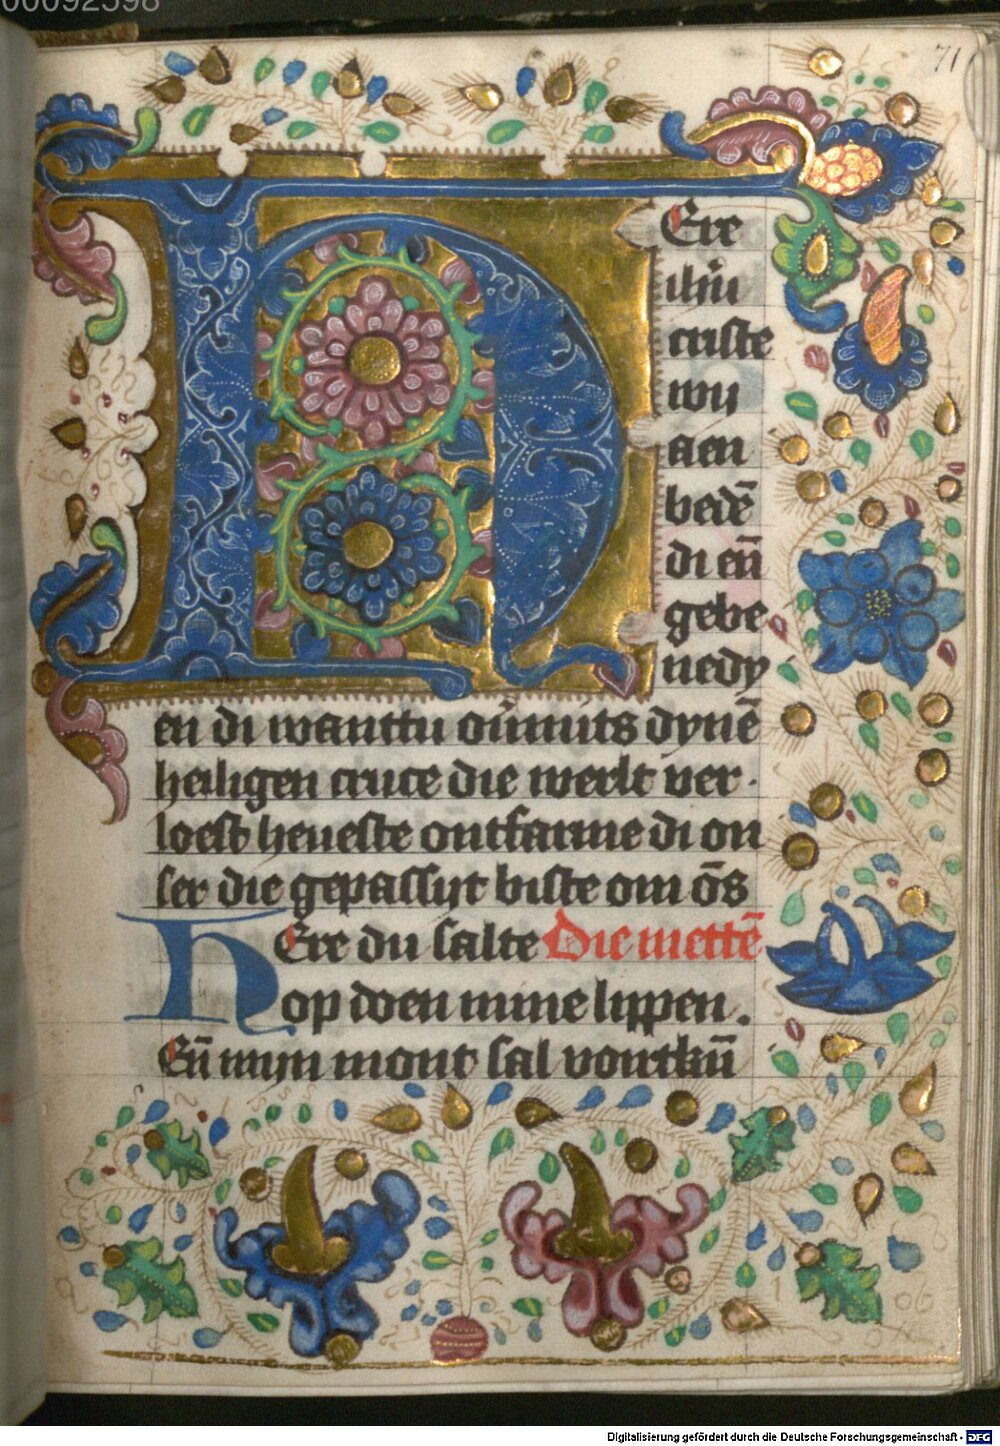 00092598
71
HEre
ihu
criste
wy
aen
bedē
di eñ
gebe
nedy
en di wanttu ouͤmits dynē
heiligen cruce die werlt ver-
loest heueste ontfarme di on
ser die gepassijt biste om ōs
HEre du salte Die mettē
op doen mine lippen.
Eñ mijn mont sal vortkū
Digitalisierung gefördert durch die Deutsche Forschungsgemeinschaft - DFG